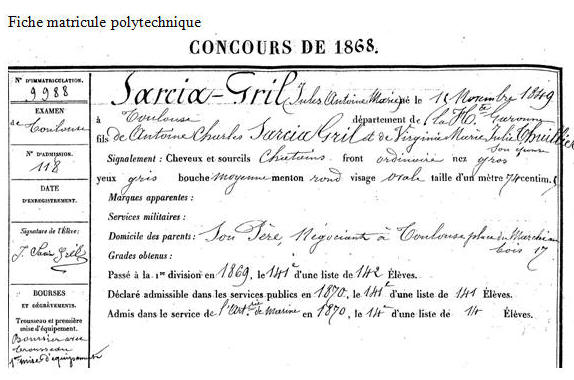 Fiche matricule polytechnique
CONCOURS DE 1868.
N° D'IMMATRICULATION.
9988
EXAMEN
de Toulouse
N° D'ADMISSION.
118
DATE
D'ENREGISTREMENT.
Signature de l'Élève :
BOURSES
ET DÉGRÈVEMENTS.
Trousseau et première
mise d'équipement.
Boursier avec
trousseau
1ère mise d'équipement
Sarcia-Gril (Jules Antoine Marie) né le 15 Novembre 1849
à Toulouse département de la Hte Garonne
fils de Antoine Charles Sarcia Gril et de Virginie Marie Julie Thuillier
son épouse
Signalement : Cheveux et sourcils Chatains front ordinaire nez gros
yeux gris bouche moyenne menton rond visage ovale taille d'un mètre 74 centim.
Marques apparentes :
Services militaires :
Domicile des parents : Son Père, Négociant à Toulouse place du Marché au
bois 17
Grades obtenus :
Passé à la 1re division en 1869, le 141e d'une liste de 142 Élèves.
Déclaré admissible dans les services publics en 1870, le 141e d'une liste de 141 Élèves.
Admis dans le service de l'Artrie de Marine en 1870, le 14e d'une liste de 14 Élèves.